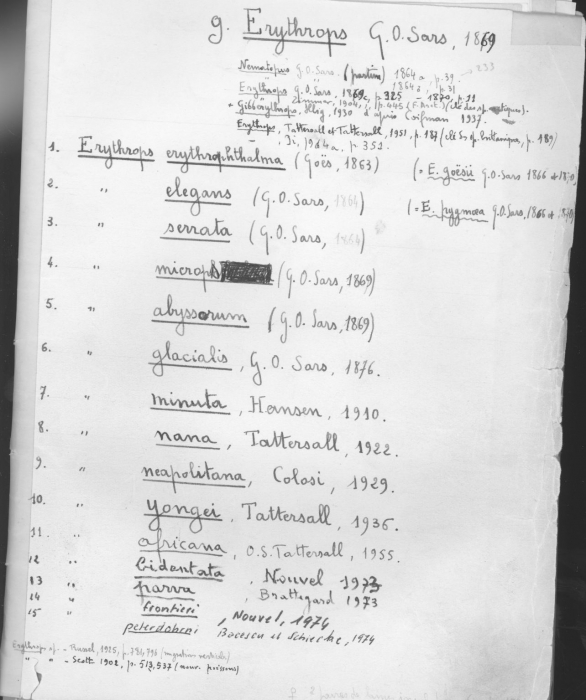 g. Erythrops G.O. Sars, 1869
Nematopus G.O. Sars (partim) 1864a, p. 39. 233
1864b, p. 31
Erythrops G.O. Sars, 1869c, p. 325 1870, p. 31
Zimmer, 1904, p. 445 (F. Arct.)
Gibberythrops, Illig, 1930 d'après Coifman 1937.
Erythrops, Tattersall et Tattersall, 1951, p. 187 (clé Sp. britanique, p. 189)
1964a, p. 351.
1. Erythrops erythrophthalma (Goës, 1863) (= E. goësii G.O. Sars 1866 + 1870)
2. " elegans (G.O. Sars, 1864) (= E. pygmœa G.O. Sars, 1866 + 1870)
3. " serrata (G.O. Sars, 1864)
4. " microps (G.O. Sars, 1869)
5. " abyssorum (G.O. Sars, 1869)
6. " glacialis, G.O. Sars, 1876.
7. " minuta, Hansen, 1910.
8. " nana, Tattersall, 1922.
9. " neapolitana, Colosi, 1929.
10. " yongei, Tattersall, 1936.
11. " africana, O.S. Tattersall, 1955.
12 " bidentata, Nouvel 1973
13 " parva, Brattegard 1973
14 " frontieri, Nouvel, 1974
15 " peterdohrni Bacescu et Schiecke, 1974
Erythrops sp. - Russel, 1925, p. 784, 796 (migration verticale)
" " - Scott 1902, p. 513, 537 (nour. poissons)